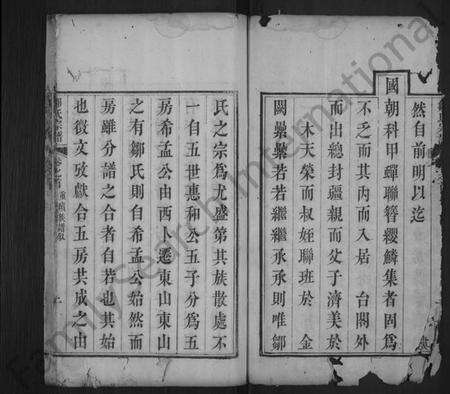 然自前明以迄
國朝科甲蟬聯簪纓鱗集者固爲
不乏而其內而入居 台閣外
而出總封疆親而父子濟美於
木天榮而叔姪聯班於 金
闕纍纍若若繼繼承承則唯鄒
氏之宗爲尤盛第其族散處不
一自五世惠和公五子分爲五
房希孟公由西卜遷東山東山
之有鄒氏則自希孟公始然而
房雖分譜之合者自若也其始
也徵文攷獻合五房共成之由
氏宗譜
重修族譜叙
二
FamilySearch International